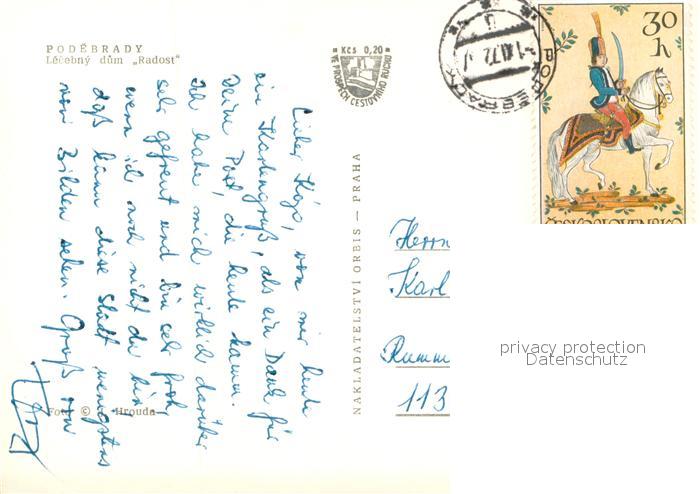 PODĚBRADY
Léčebný dům „Radost"
Kčs 0,20
VE PROSPĚCH CESTOVNÍHO RUCHU
-1.XI.72.-
30
h
ČESKOSLOVENSKO
Lieber Karl, von mir heute
ein Kartengruß, als ein Dank für
Deine Post, die heute kam.
Ich habe mich wirklich darüber
sehr gefreut und bin sehr froh,
wenn ich noch nicht da bin
daß kann diese Stadt wenigstens
von Bildern sehen. Gruß von
Foto © Hrouda
NAKLADATELSTVÍ ORBIS — PRAHA
Herrn
Karl
Rumm
113
privacy protection
Datenschutz